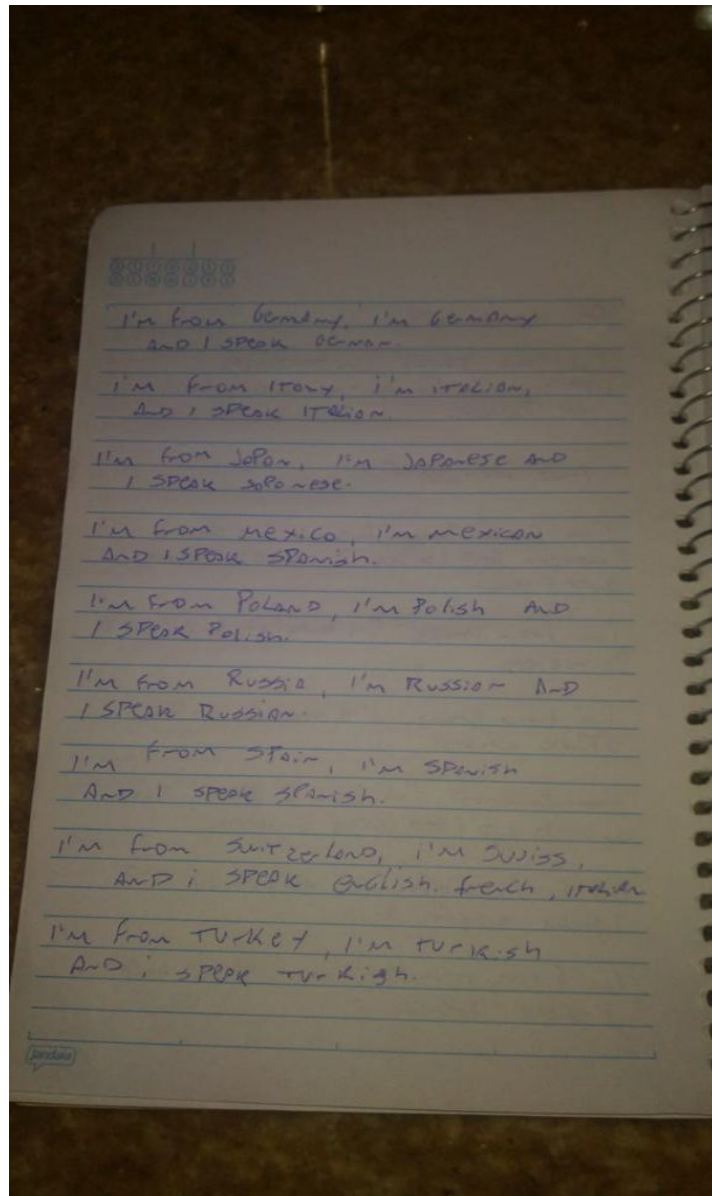 I'm from Germany, I'm Germany
AND I SPEAK German.
I'm from Italy, i'm italian,
AND I SPEAK ITALIAN.
I'm from Japan, I'm JAPANESE AND
I SPEAK Japanese.
I'm from mexico, I'm mexican
AND I SPEAK SPANish.
I'm from POLAND, I'm Polish AND
I SPEAK Polish.
I'm from Russia, I'm Russian AND
I SPEAK Russian.
I'm from Spain, I'm Spanish
AND I SPEAK Spanish.
I'm from Switzerland, i'm Swiss,
AND i SPEAK english. french, italian
I'm from TURKEY, I'm turkish
AND i SPEAK turkish.
jandaia